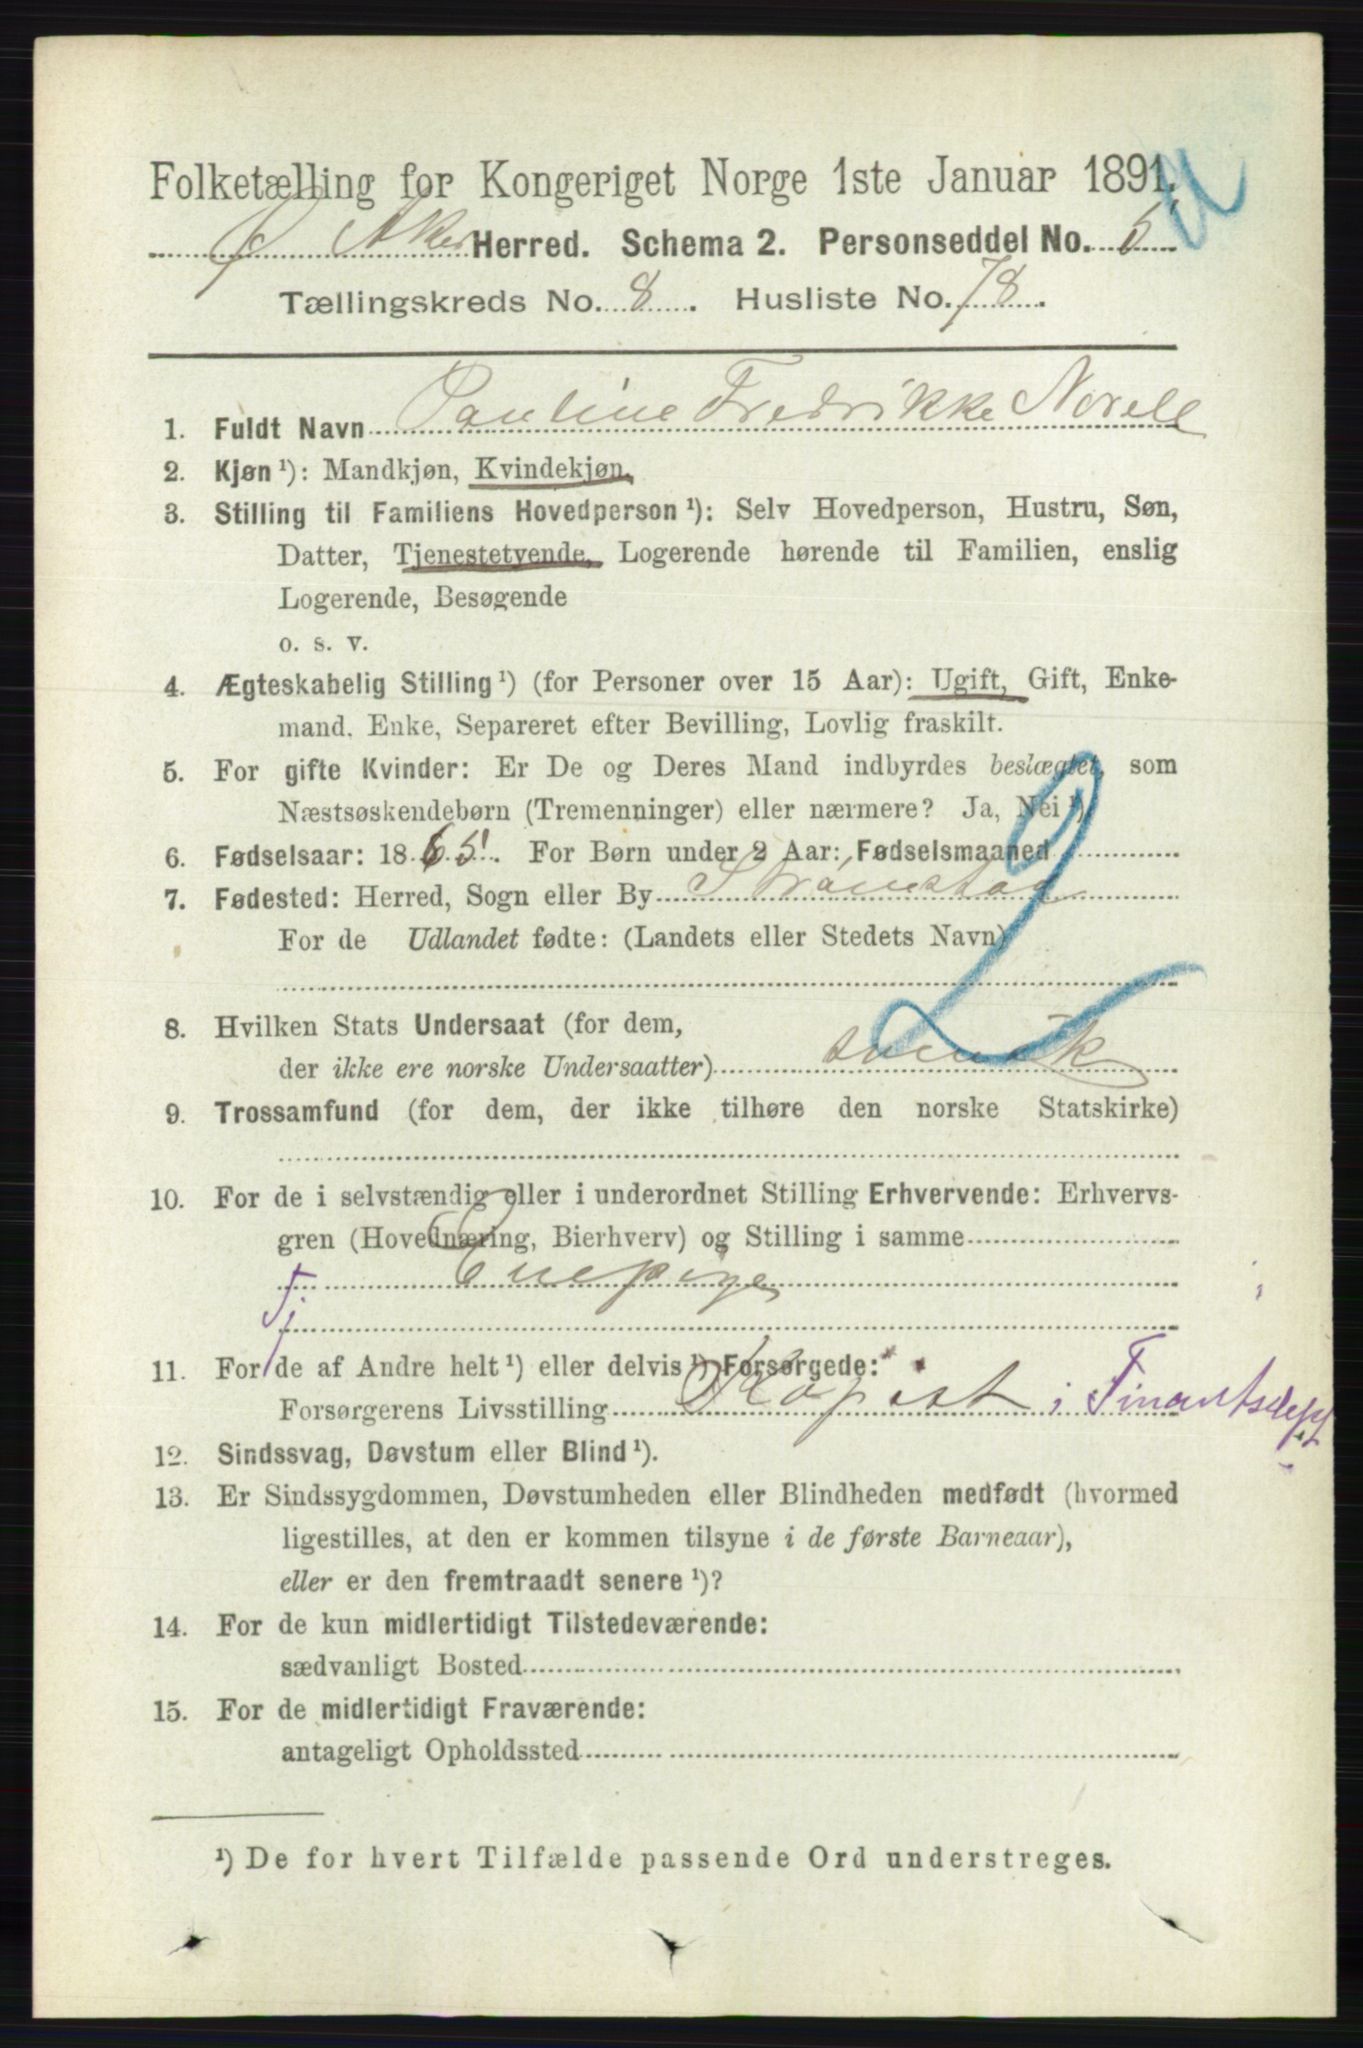 Folketælling for Kongeriget Norge 1ste Januar 1891.
Ø Aker Herred. Schema 2. Personseddel No. 5
Tællingskreds No. 8. Husliste No. 78.
1. Fuldt Navn Pauline Fredrikke Norell
2. Kjøn ¹): Mandkjøn, Kvindekjøn.
3. Stilling til Familiens Hovedperson ¹): Selv Hovedperson, Hustru, Søn,
Datter, Tjenestetyende, Logerende hørende til Familien, enslig
Logerende, Besøgende
o. s. v.
4. Ægteskabelig Stilling ¹) (for Personer over 15 Aar): Ugift, Gift, Enke-
mand, Enke, Separeret efter Bevilling, Lovlig fraskilt.
5. For gifte Kvinder: Er De og Deres Mand indbyrdes beslægtet, som
Næstsøskendebørn (Tremenninger) eller nærmere? Ja, Nei ¹)
6. Fødselsaar: 1865. For Børn under 2 Aar: Fødselsmaaned
7. Fødested: Herred, Sogn eller By Strømstad
For de Udlandet fødte: (Landets eller Stedets Navn)
2
8. Hvilken Stats Undersaat (for dem,
der ikke ere norske Undersaatter) svensk
9. Trossamfund (for dem, der ikke tilhøre den norske Statskirke)
10. For de i selvstændig eller i underordnet Stilling Erhvervende: Erhvervs-
gren (Hovednæring, Bierhverv) og Stilling i samme
Enepige
Tj
11. For de af Andre helt ¹) eller delvis ¹) Forsørgede:
Forsørgerens Livsstilling Kopist i Finantsdept.
12. Sindssvag, Døvstum eller Blind ¹).
13. Er Sindssygdommen, Døvstumheden eller Blindheden medfødt (hvormed
ligestilles, at den er kommen tilsyne i de første Barneaar),
eller er den fremtraadt senere ¹)?
14. For de kun midlertidigt Tilstedeværende:
sædvanligt Bosted
15. For de midlertidigt Fraværende:
antageligt Opholdssted
¹) De for hvert Tilfælde passende Ord understreges.